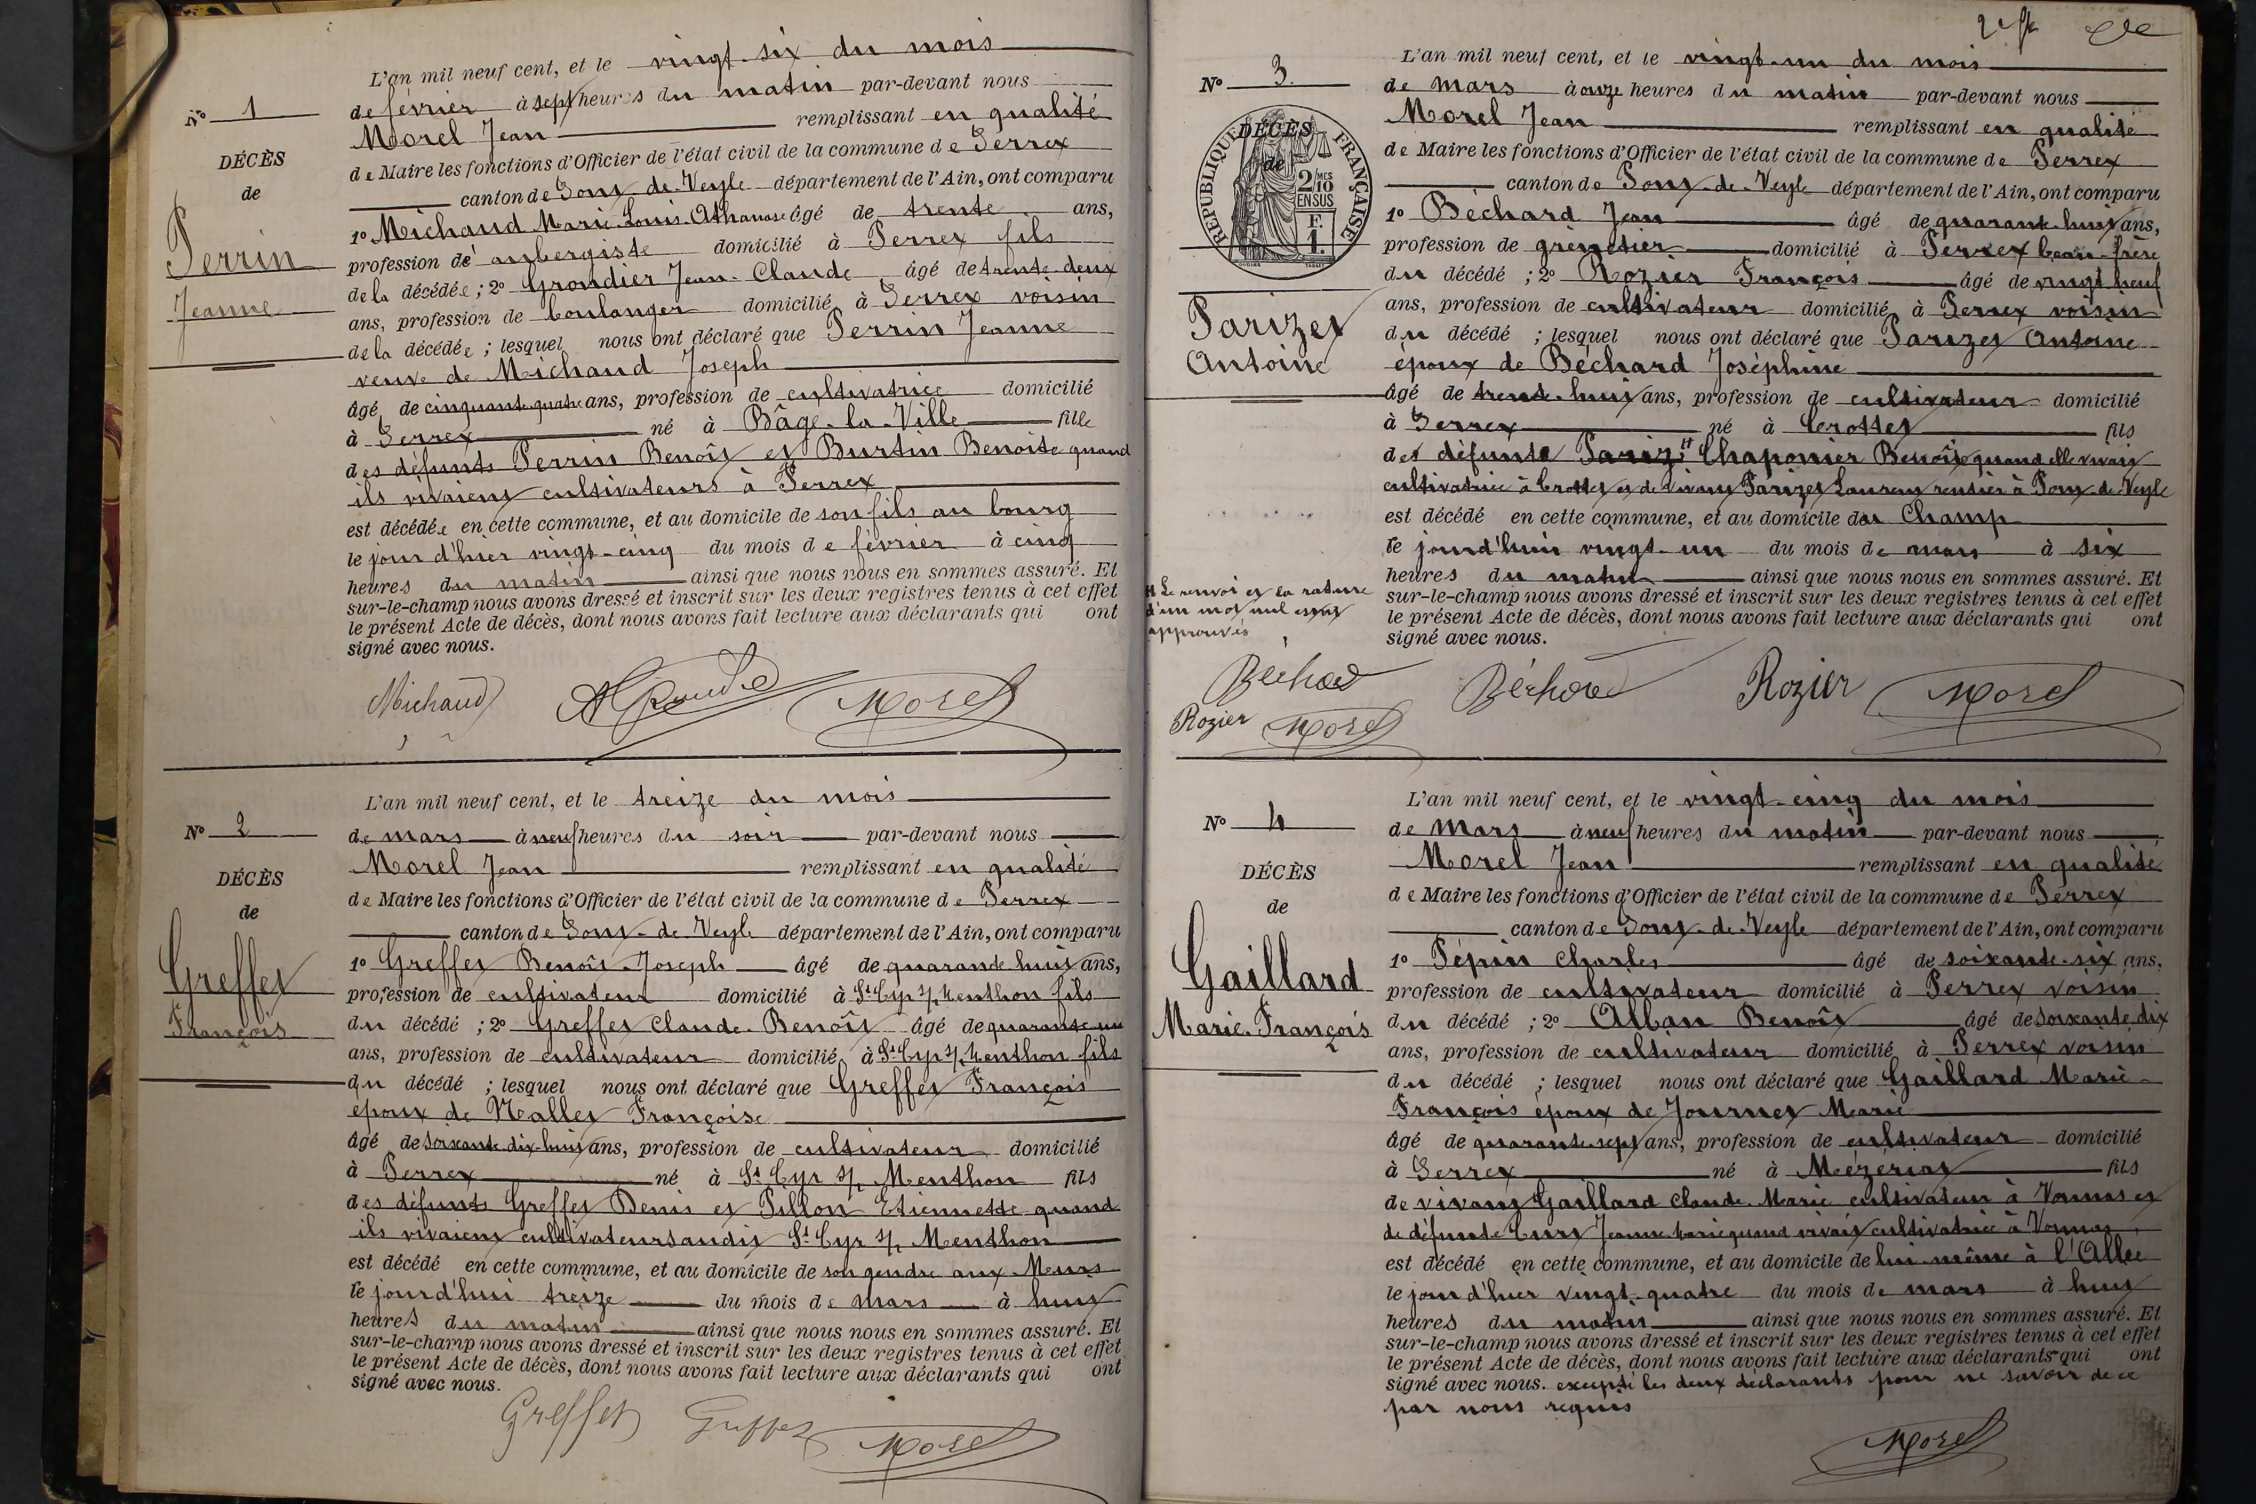 L'an mil neuf cent, et le vingt-six du mois
N° 1
de février à sept heures du matin par-devant nous
Morel Jean remplissant en qualité
DÉCÈS
de Maire les fonctions d'Officier de l'état civil de la commune de Perrex
de
canton de Pont-de-Veyle département de l'Ain, ont comparu
1° Michaud Marie-Louis-Athanase âgé de trente ans,
Perrin
profession d'aubergiste domicilié à Perrex fils
Jeanne
de la décédée ; 2° Grondier Jean-Claude âgé de trente-deux
ans, profession de boulanger domicilié à Perrex voisin
de la décédée ; lesquel nous ont déclaré que Perrin Jeanne
veuve de Michaud Joseph
âgé de cinquante-quatre ans, profession de cultivatrice domicilié
à Perrex né à Bâgé-la-Ville fille
des défunts Perrin Benoît et Burtin Benoite quand
ils vivaient cultivateurs à Perrex
est décédée en cette commune, et au domicile de son fils au bourg
le jour d'hier vingt-cinq du mois de février à cinq
heures du matin ainsi que nous nous en sommes assuré. Et
sur-le-champ nous avons dressé et inscrit sur les deux registres tenus à cet effet
le présent Acte de décès, dont nous avons fait lecture aux déclarants qui ont
signé avec nous.
Michaud Morel
L'an mil neuf cent, et le treize du mois
N° 2
de mars à neuf heures du soir par-devant nous
Morel Jean remplissant en qualité
DÉCÈS
de Maire les fonctions d'Officier de l'état civil de la commune de Perrex
de
canton de Pont-de-Veyle département de l'Ain, ont comparu
Greffet
François
1° Greffet Benoît-Joseph âgé de quarante huit ans,
profession de cultivateur domicilié à St Cyr s/ Menthon fils
du décédé ; 2° Greffet Claude-Benoît âgé de quarante-un
ans, profession de cultivateur domicilié à St Cyr s/ Menthon fils
du décédé ; lesquel nous ont déclaré que Greffet François
époux de Mallet Françoise
âgé de soixante-dix-huit ans, profession de cultivateur domicilié
à Perrex né à St Cyr s/ Menthon fils
des défunts Greffet Denis et Pillon Etiennette quand
ils vivaient cultivateurs audit St Cyr s/ Menthon
est décédé en cette commune, et au domicile de son gendre aux Meurs
le jourd'hui treize du mois de mars à huit
heures du matin ainsi que nous nous en sommes assuré. Et
sur-le-champ nous avons dressé et inscrit sur les deux registres tenus à cet effet
le présent Acte de décès, dont nous avons fait lecture aux déclarants qui ont
signé avec nous.
Greffet Greffet Morel
L'an mil neuf cent, et le vingt-un du mois
N° 3.
de mars à onze heures du matin par-devant nous
Morel Jean remplissant en qualité
DÉCÈS
de
RÉPUBLIQUE FRANÇAISE
2 MES
10
EN SUS
F.
1.
de Maire les fonctions d'Officier de l'état civil de la commune de Perrex
canton de Pont-de-Veyle département de l'Ain, ont comparu
1° Béchard Jean âgé de quarante-huit ans,
profession de grènetier domicilié à Perrex beau-frère
du décédé ; 2° Rozier François âgé de vingt neuf
ans, profession de cultivateur domicilié à Perrex voisin
Parizet
Antoine
du décédé ; lesquel nous ont déclaré que Parizet Antoine
époux de Béchard Joséphine
âgé de trente-huit ans, profession de cultivateur domicilié
à Perrex né à Crottet fils
de défunte Chaponier Benoîte quand elle vivait
cultivatrice à Crottet et de vivant Parizet Laurent rentier à Pont-de-Veyle
est décédé en cette commune, et au domicile du Champ
le jourd'hui vingt-un du mois de mars à six
heures du matin ainsi que nous nous en sommes assuré. Et
sur-le-champ nous avons dressé et inscrit sur les deux registres tenus à cet effet
le présent Acte de décès, dont nous avons fait lecture aux déclarants qui ont
signé avec nous.
Le renvoi et la rature
d'un mot nul
approuvés
Béchard
Rozier Morel
Béchard Rozier Morel
L'an mil neuf cent, et le vingt-cinq du mois
N° 4
de mars à neuf heures du matin par-devant nous
Morel Jean remplissant en qualité
DÉCÈS
de Maire les fonctions d'Officier de l'état civil de la commune de Perrex
de
canton de Pont-de-Veyle département de l'Ain, ont comparu
Gaillard
Marie-François
1° Pépin Charles âgé de soixante-six ans,
profession de cultivateur domicilié à Perrex voisin
du décédé ; 2° Alban Benoît âgé de soixante dix
ans, profession de cultivateur domicilié à Perrex voisin
du décédé ; lesquel nous ont déclaré que Gaillard Marie-
François époux de Journet Marie
âgé de quarante-sept ans, profession de cultivateur domicilié
à Perrex né à Mézériat fils
de vivant Gaillard Claude-Marie cultivateur à Vonnas et
de défunte Curt Jeanne Marie quand vivait cultivatrice à Vonnas
est décédé en cette commune, et au domicile de lui-même à l'Allée
le jour d'hier vingt-quatre du mois de mars à huit
heures du matin ainsi que nous nous en sommes assuré. Et
sur-le-champ nous avons dressé et inscrit sur les deux registres tenus à cet effet
le présent Acte de décès, dont nous avons fait lecture aux déclarants qui ont
signé avec nous. excepté les deux déclarants pour ne savoir de ce
par nous requis
Morel